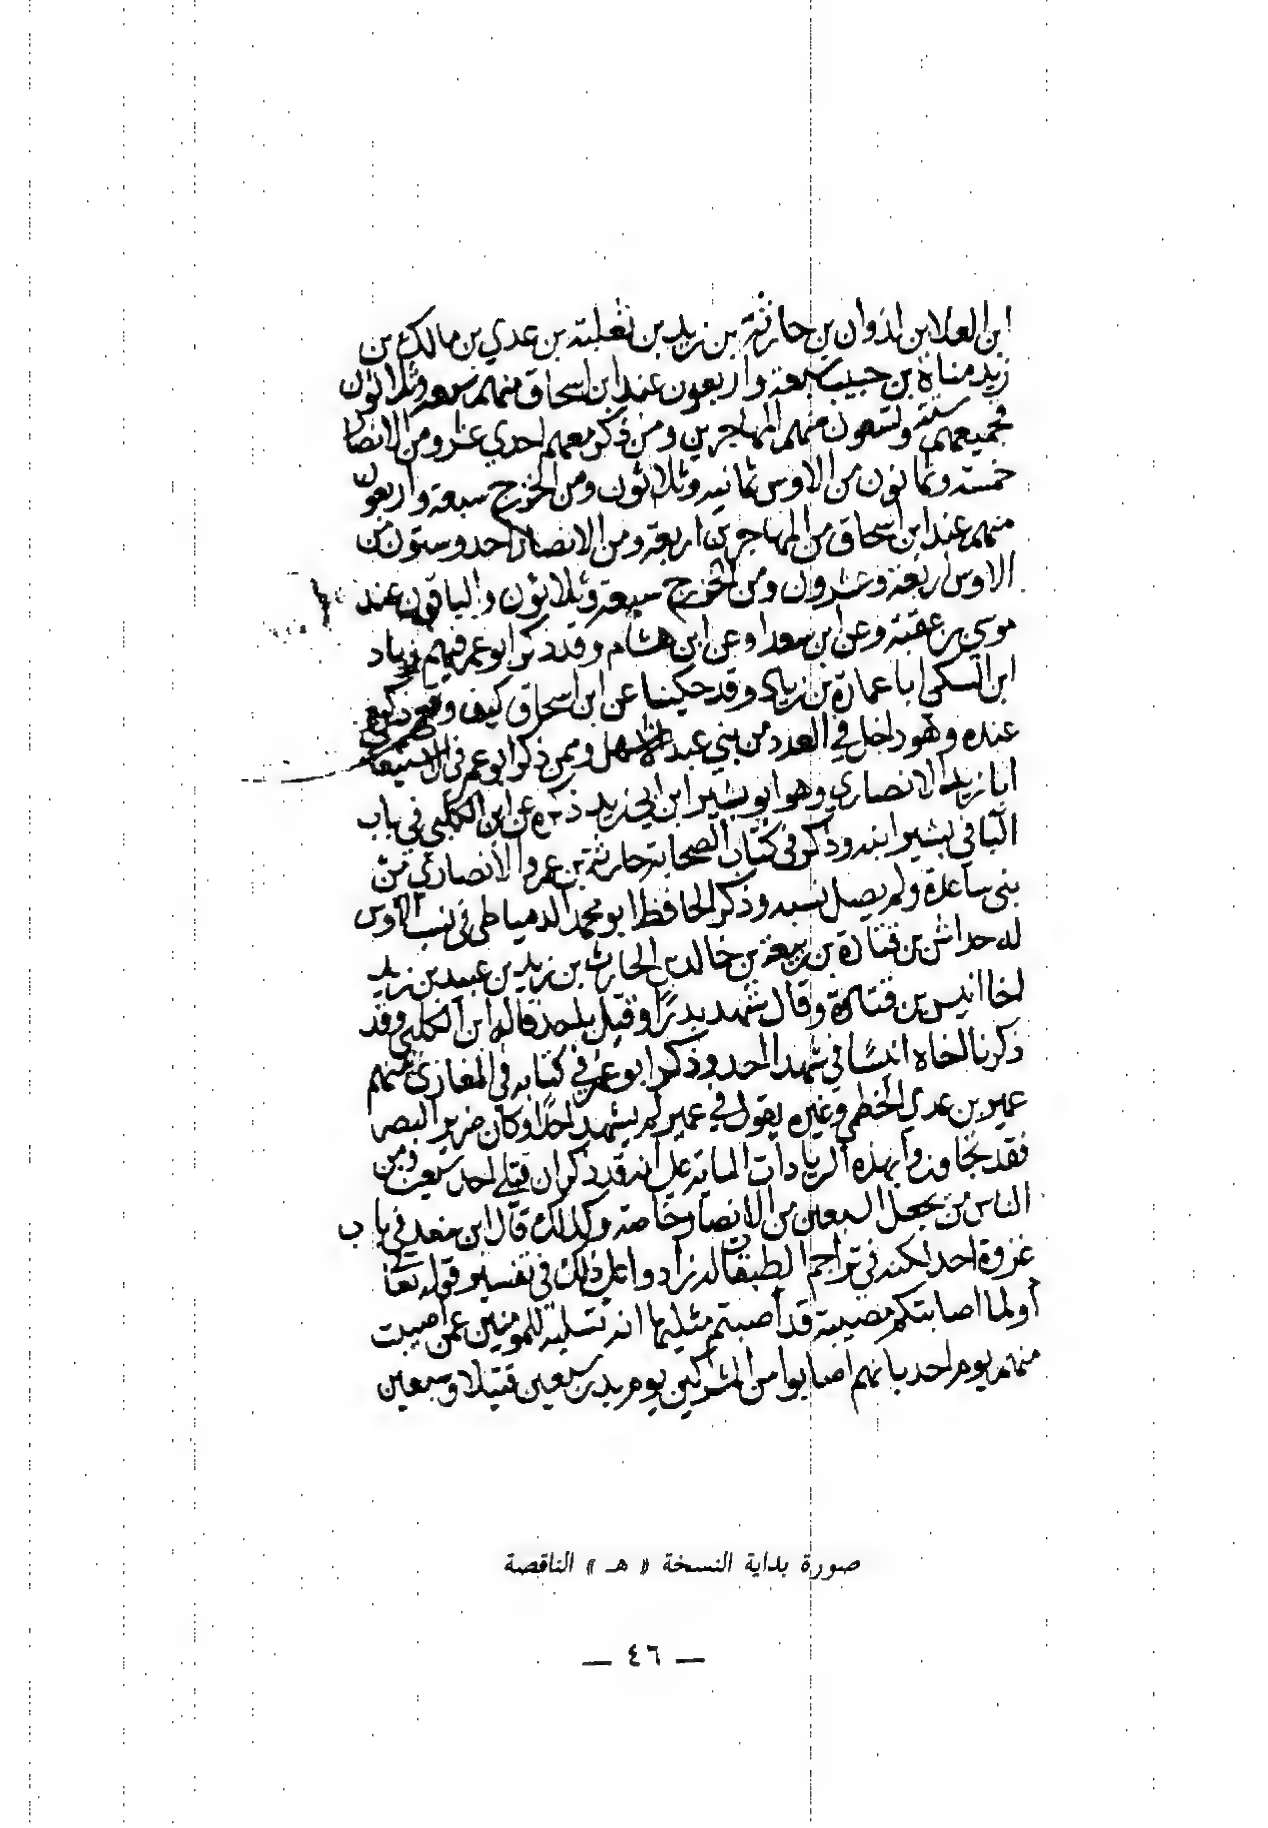 ابن العلا بن لوذان بن حارثة بن زيد بن ثعلبة بن عدي بن مالك بن
زيد مناة بن حبيب سبعة واربعون عند ابن اسحاق منهم سبعة وثلاثون
فجميعهم ستة وتسعون منهم المهاجرين ومن ذكر معهم احدي عشر ومن الانصار
خمسة وثمانون من الاوس ثمانيه وثلاثون ومن الخزرج سبعة واربعون
منهم عند ابن اسحاق من المهاجرين اربعة ومن الانصار احد وستون من
الاوس اربعة وعشرون ومن الخزرج سبعة وثلاثون والباقون عند
موسي بن عقبة وعن ابن سعد او عن ابن هشام وقد ذكر ابو عمر فيهم زياد
ابن السكن ابا عمارة بن زياد وقد حكينا عن ابن اسحاق كيف وقع ذكره
عنده وهو داخل في العدد من بني عبد الاشهل وممن ذكر ابو عمر في الاستيعاب
ابا زيد الانصاري وهو ابو بشير ابن ابي زيد ذكره عن ابن الكلبي في باب
البا في بشير ابنه وذكر في كتاب الصحابة حارثة بن عمرو الانصاري من
بني ساعدة ولم يصل نسبه وذكر الحافظ ابو محمد الدمياطي في نسب الاوس
له حداش بن قتادة بن ربيعة بن خالد بن الحارث بن زيد بن عبيد بن زيد
اخا انيس بن قتادة وقال شهد بدرًا وقتل باحد قاله ابن الكلبي وقد
ذكرنا اخاه انيسًا في شهدا احد وذكر ابو عمر في كتابه في المغازي منهم
عمير بن عدي الخطمي وغيره يقول في عمير لم يشهد احدًا وكان ضرير البصر
فقد تجاوزوا بهذه الزيادات الماية على انه قد ذكر ان قتلى احد سبعين ومن
الناس من يجعل السبعين من الانصار خاصة وكذلك قال ابن سعد في باب
غزوة احد لكنه في تراجم الطبقات له زاد وا على ذلك في تفسير قوله تعا
أولما اصابتكم مصيبة قد أصبتم مثليها انه تسلية للمومنين عمن اصيبت
منهم يوم احد بانهم اصابوا من المشركين يوم بدر سبعين قتيلا وسبعين
صورة بداية النسخة « هـ » الناقصة
— ٤٦ —